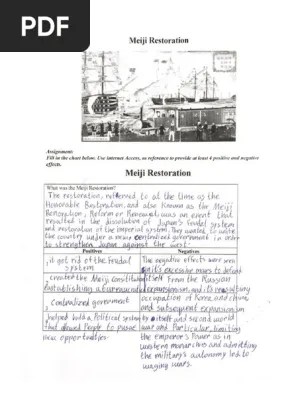 PDF
Meiji Restoration
Assignment:
Fill in the chart below. Use internet Access, as reference to provide at least 4 positive and negative
effects.
Meiji Restoration
What was the Meiji Restoration?
The restoration, referred to at the time as the
Honorable Restoration, and also known as the Meiji
Renovation, Reform or Renewal, was an event that
resulted in the dissolution of Japan's feudal system
and restoration of the imperial system. They wanted to unite
the country under a new centralized government in order
to strengthen Japan against the west.
Positives
Negatives
1. it got rid of the Feudal
system
created the Meiji constitution
establishing a bureaucracy
3. Centralized government
helped build a Political system
that allowed People to pursue
new opportunities.
The negative effects were seen
in its excessive moves to defend
itself From the Russian
expansionism and its resulting
occupation of Korea and china
and subsequent expansionism
itself and second world
war and Particular, limiting
the emperor's Power as in
western monarchies and admitting
the military's autonomy led to
waging wars.